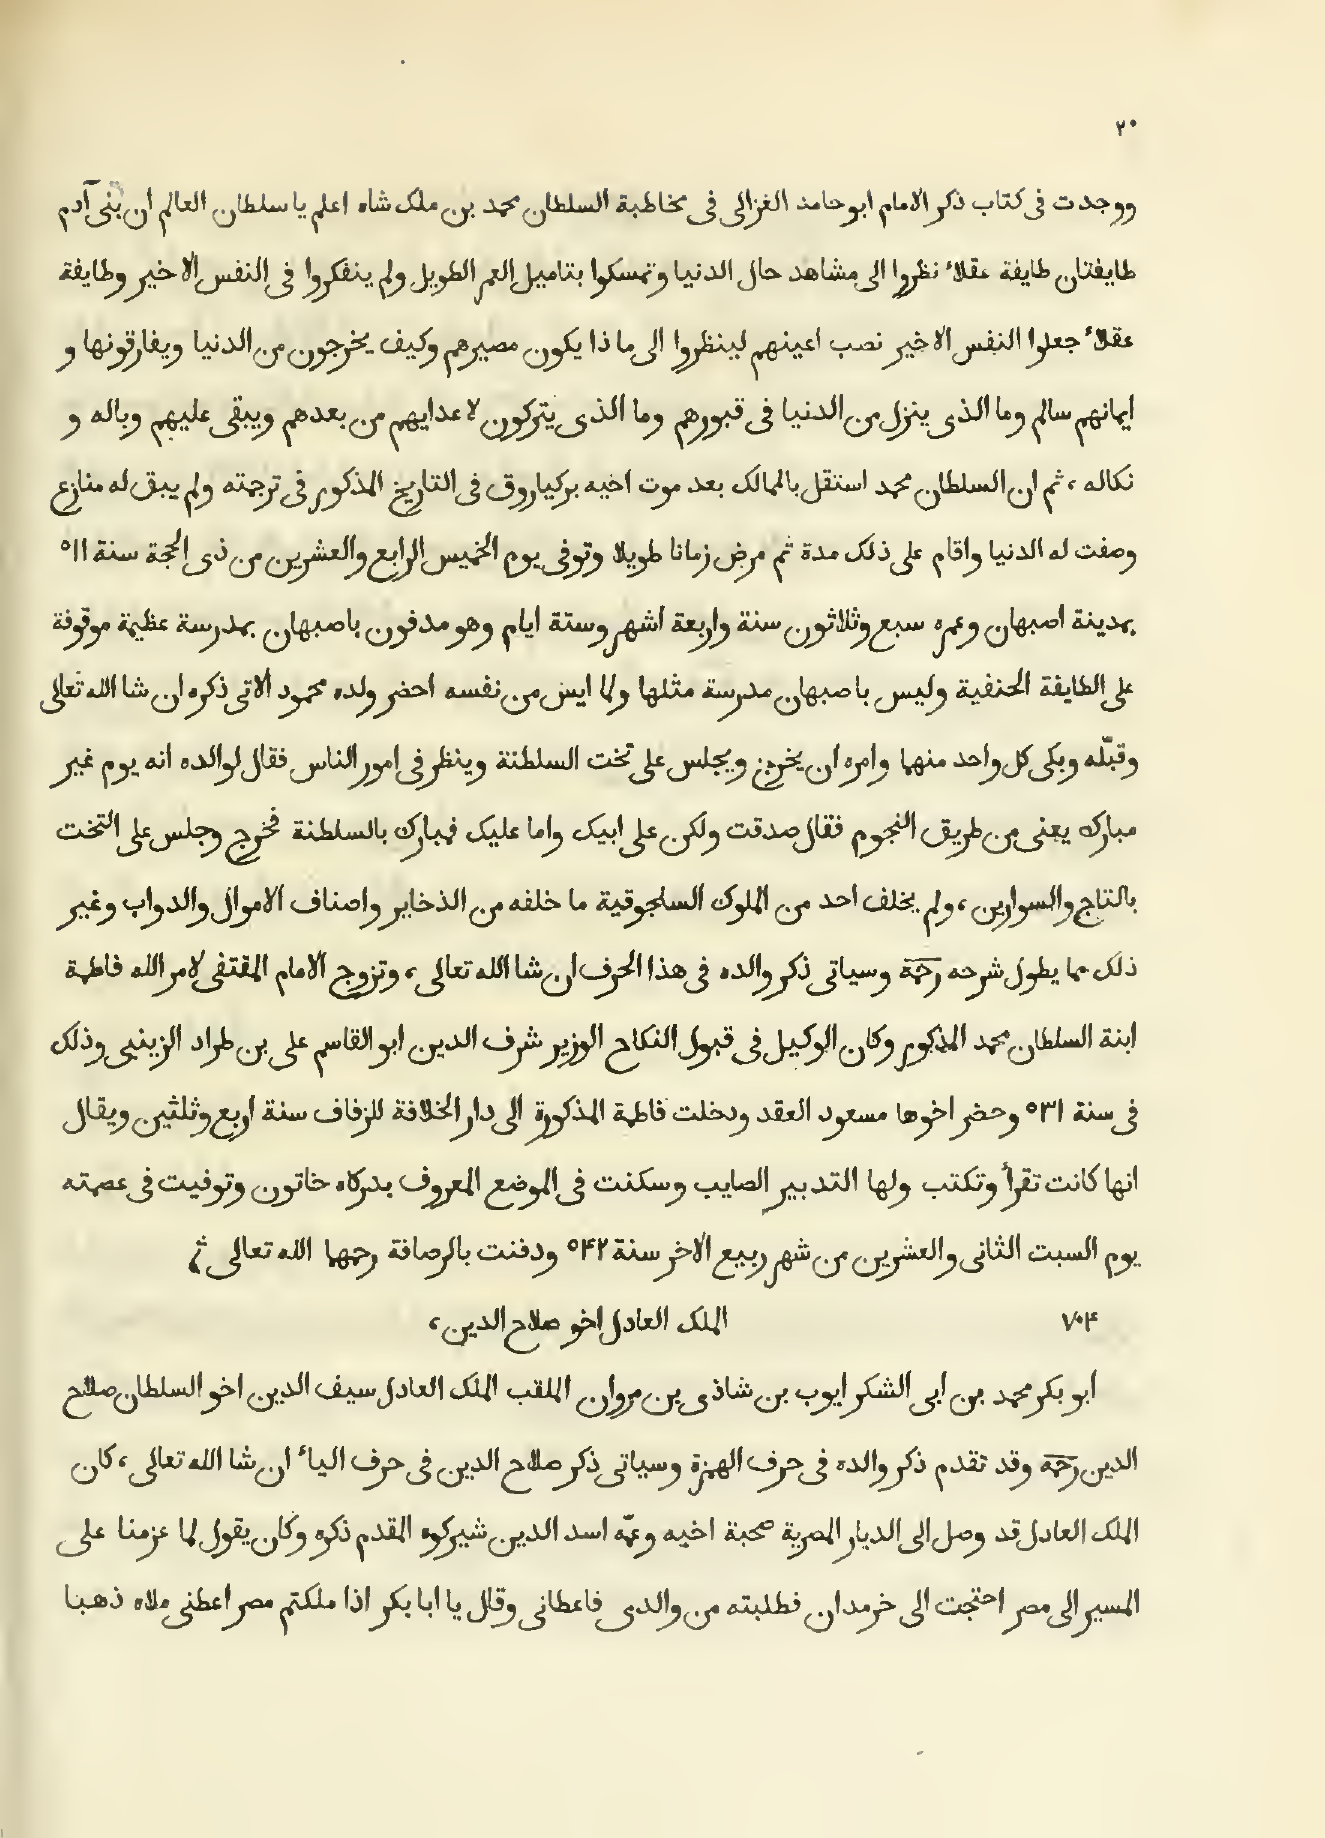 ٢٠
ووجدت فى كتاب ذكر الامام ابو حامد الغزالى فى مخاطبة السلطان محمد بن ملك شاه اعلم يا سلطان العالم ان بنى آدم
طايفتان طايفة عقلاء نظروا الى مشاهد حال الدنيا وتمسكوا بتاميل العمر الطويل ولم ينفكروا فى النفس الاخير وطايفة
عقلاء جعلوا النفس الاخير نصب اعينهم لينظروا الى ما ذا يكون مصيرهم وكيف يخرجون من الدنيا ويفارقونها و
ايمانهم سالم وما الذى ينزل من الدنيا فى قبورهم وما الذى يتركون لاعدايهم من بعدهم ويبقى عليهم وباله و
نكاله ، ثم ان السلطان محمد استقل بالممالك بعد موت اخيه بركياروق فى التاريخ المذكور فى ترجمته ولم يبق له منازع
وصفت له الدنيا واقام على ذلك مدة ثم مرض زمانا طويلا وتوفى يوم الخميس الرابع والعشرين من ذى الحجة سنة ٥١١
بمدينة اصبهان وعمره سبع وثلاثون سنة واربعة اشهر وستة ايام وهو مدفون باصبهان بمدرسة عظيمة موقوفة
على الطايفة الحنفية وليس باصبهان مدرسة مثلها ولما ايس من نفسه احضر ولده محمود الاتى ذكره ان شا الله تعالى
وقبّله وبكى كل واحد منهما وامره ان يخرج ويجلس على تخت السلطنة وينظر فى امور الناس فقال لوالده انه يوم غير
مبارك يعنى من طريق النجوم فقال صدقت ولكن على ابيك واما عليك فمبارك بالسلطنة فخرج وجلس على التخت
بالتاج والسوارين ، ولم يخلف احد من الملوك السلجوقية ما خلفه من الذخاير واصناف الاموال والدواب وغير
ذلك مما يطول شرحه رحمة وسياتى ذكر والده فى هذا الحرف ان شا الله تعالى ، وتزوج الامام المقتفى لامر الله فاطمة
ابنة السلطان محمد المذكور وكان الوكيل فى قبول النكاح الوزير شرف الدين ابو القاسم على بن طراد الزينبى وذلك
فى سنة ٥٣١ وحضر اخوها مسعود العقد ودخلت فاطمة المذكورة الى دار الخلافة للزفاف سنة اربع وثلثين ويقال
انها كانت تقرأ وتكتب ولها التدبير الصايب وسكنت فى الموضع المعروف بدركاه خاتون وتوفيت فى عصمته
يوم السبت الثانى والعشرين من شهر ربيع الاخر سنة ٥٤٢ ودفنت بالرصافة رحمها الله تعالى ؞
٧٠٤ الملك العادل اخو صلاح الدين ،
ابو بكر محمد بن ابى الشكر ايوب بن شاذى بن مروان الملقب الملك العادل سيف الدين اخو السلطان صلاح
الدين رحمة وقد تقدم ذكر والده فى حرف الهمزة وسياتى ذكر صلاح الدين فى حرف الياء ان شا الله تعالى ، كان
الملك العادل قد وصل الى الديار المصرية صحبة اخيه وعمّه اسد الدين شيركوه المقدم ذكره وكان يقول لما عزمنا على
المسير الى مصر احتجت الى خرمدان فطلبته من والدى فاعطانى وقال يا ابا بكر اذا ملكتم مصر اعطنى ملاه ذهبا